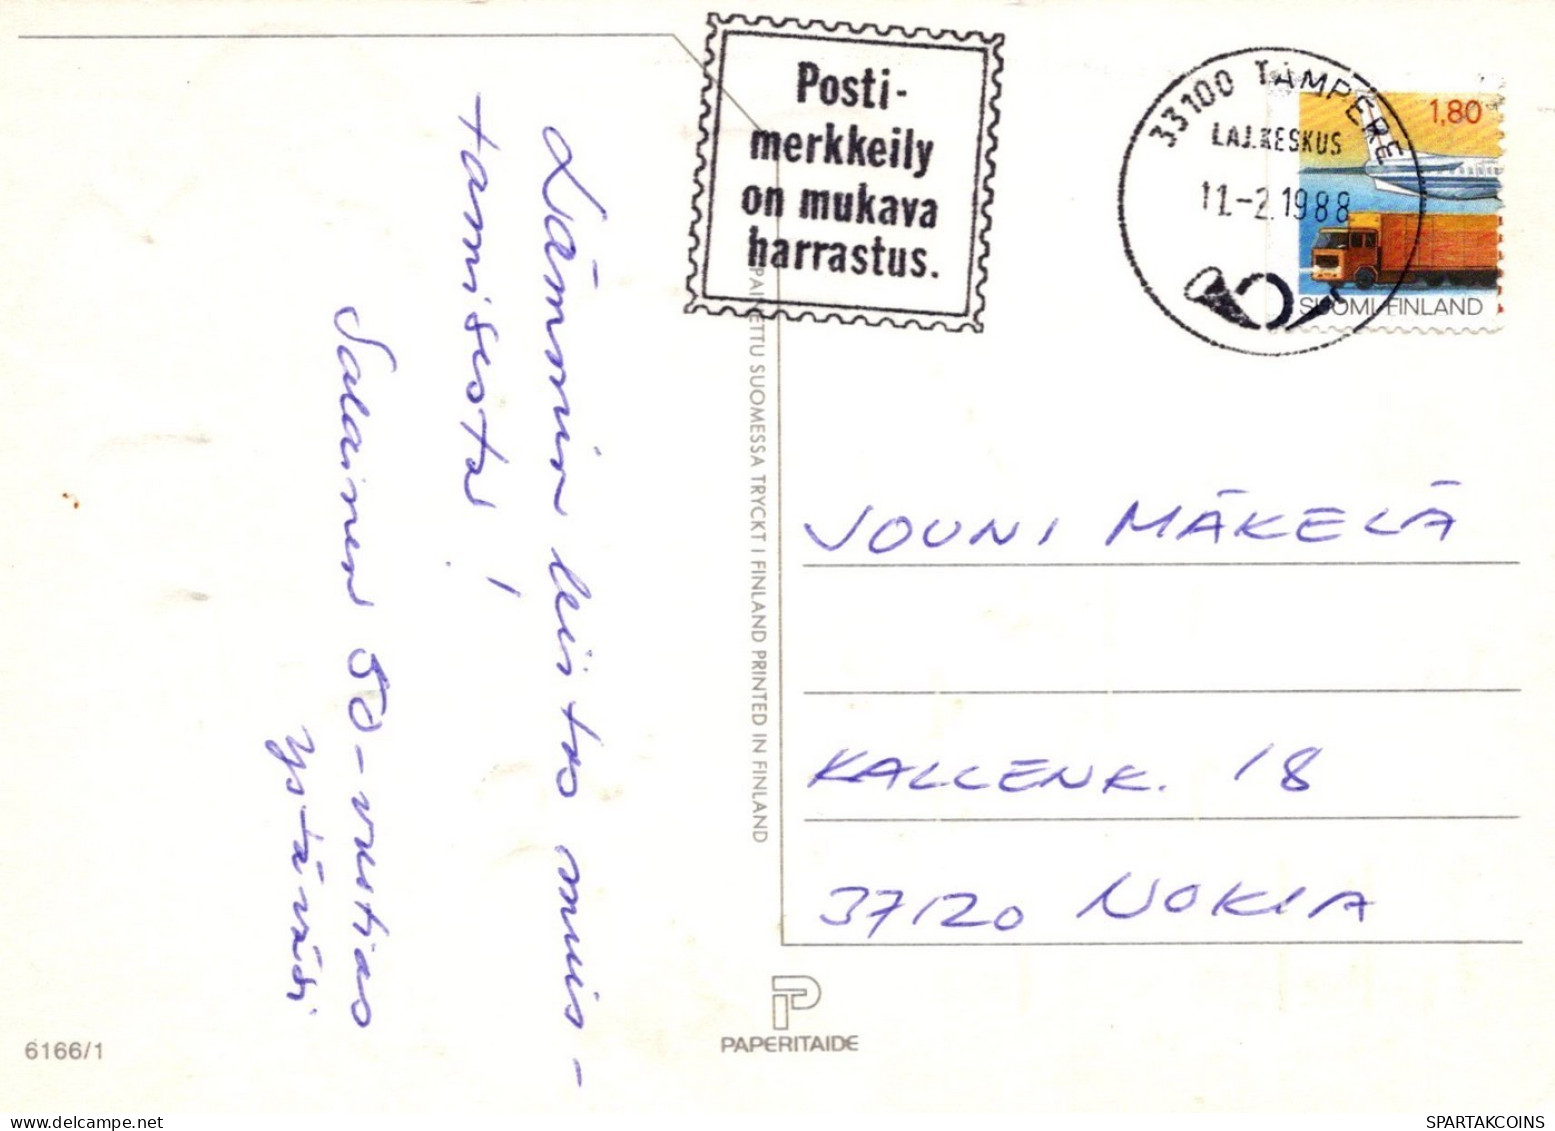 Posti-
merkkeily
on mukava
harrastus.
33100 TAMPERE
LAJ.KESKUS
11.-2.1988
1,80
SUOMI-FINLAND
Lämmin kiitos muis-
tamisesta!
Salainen 50-vuotias
ystäväsi
PAINETTU SUOMESSA TRYCKT I FINLAND PRINTED IN FINLAND
JOUNI MÄKELÄ
KALLENK. 18
37120 NOKIA
PAPERITAIDE
6166/1
SPARTAKCOINS